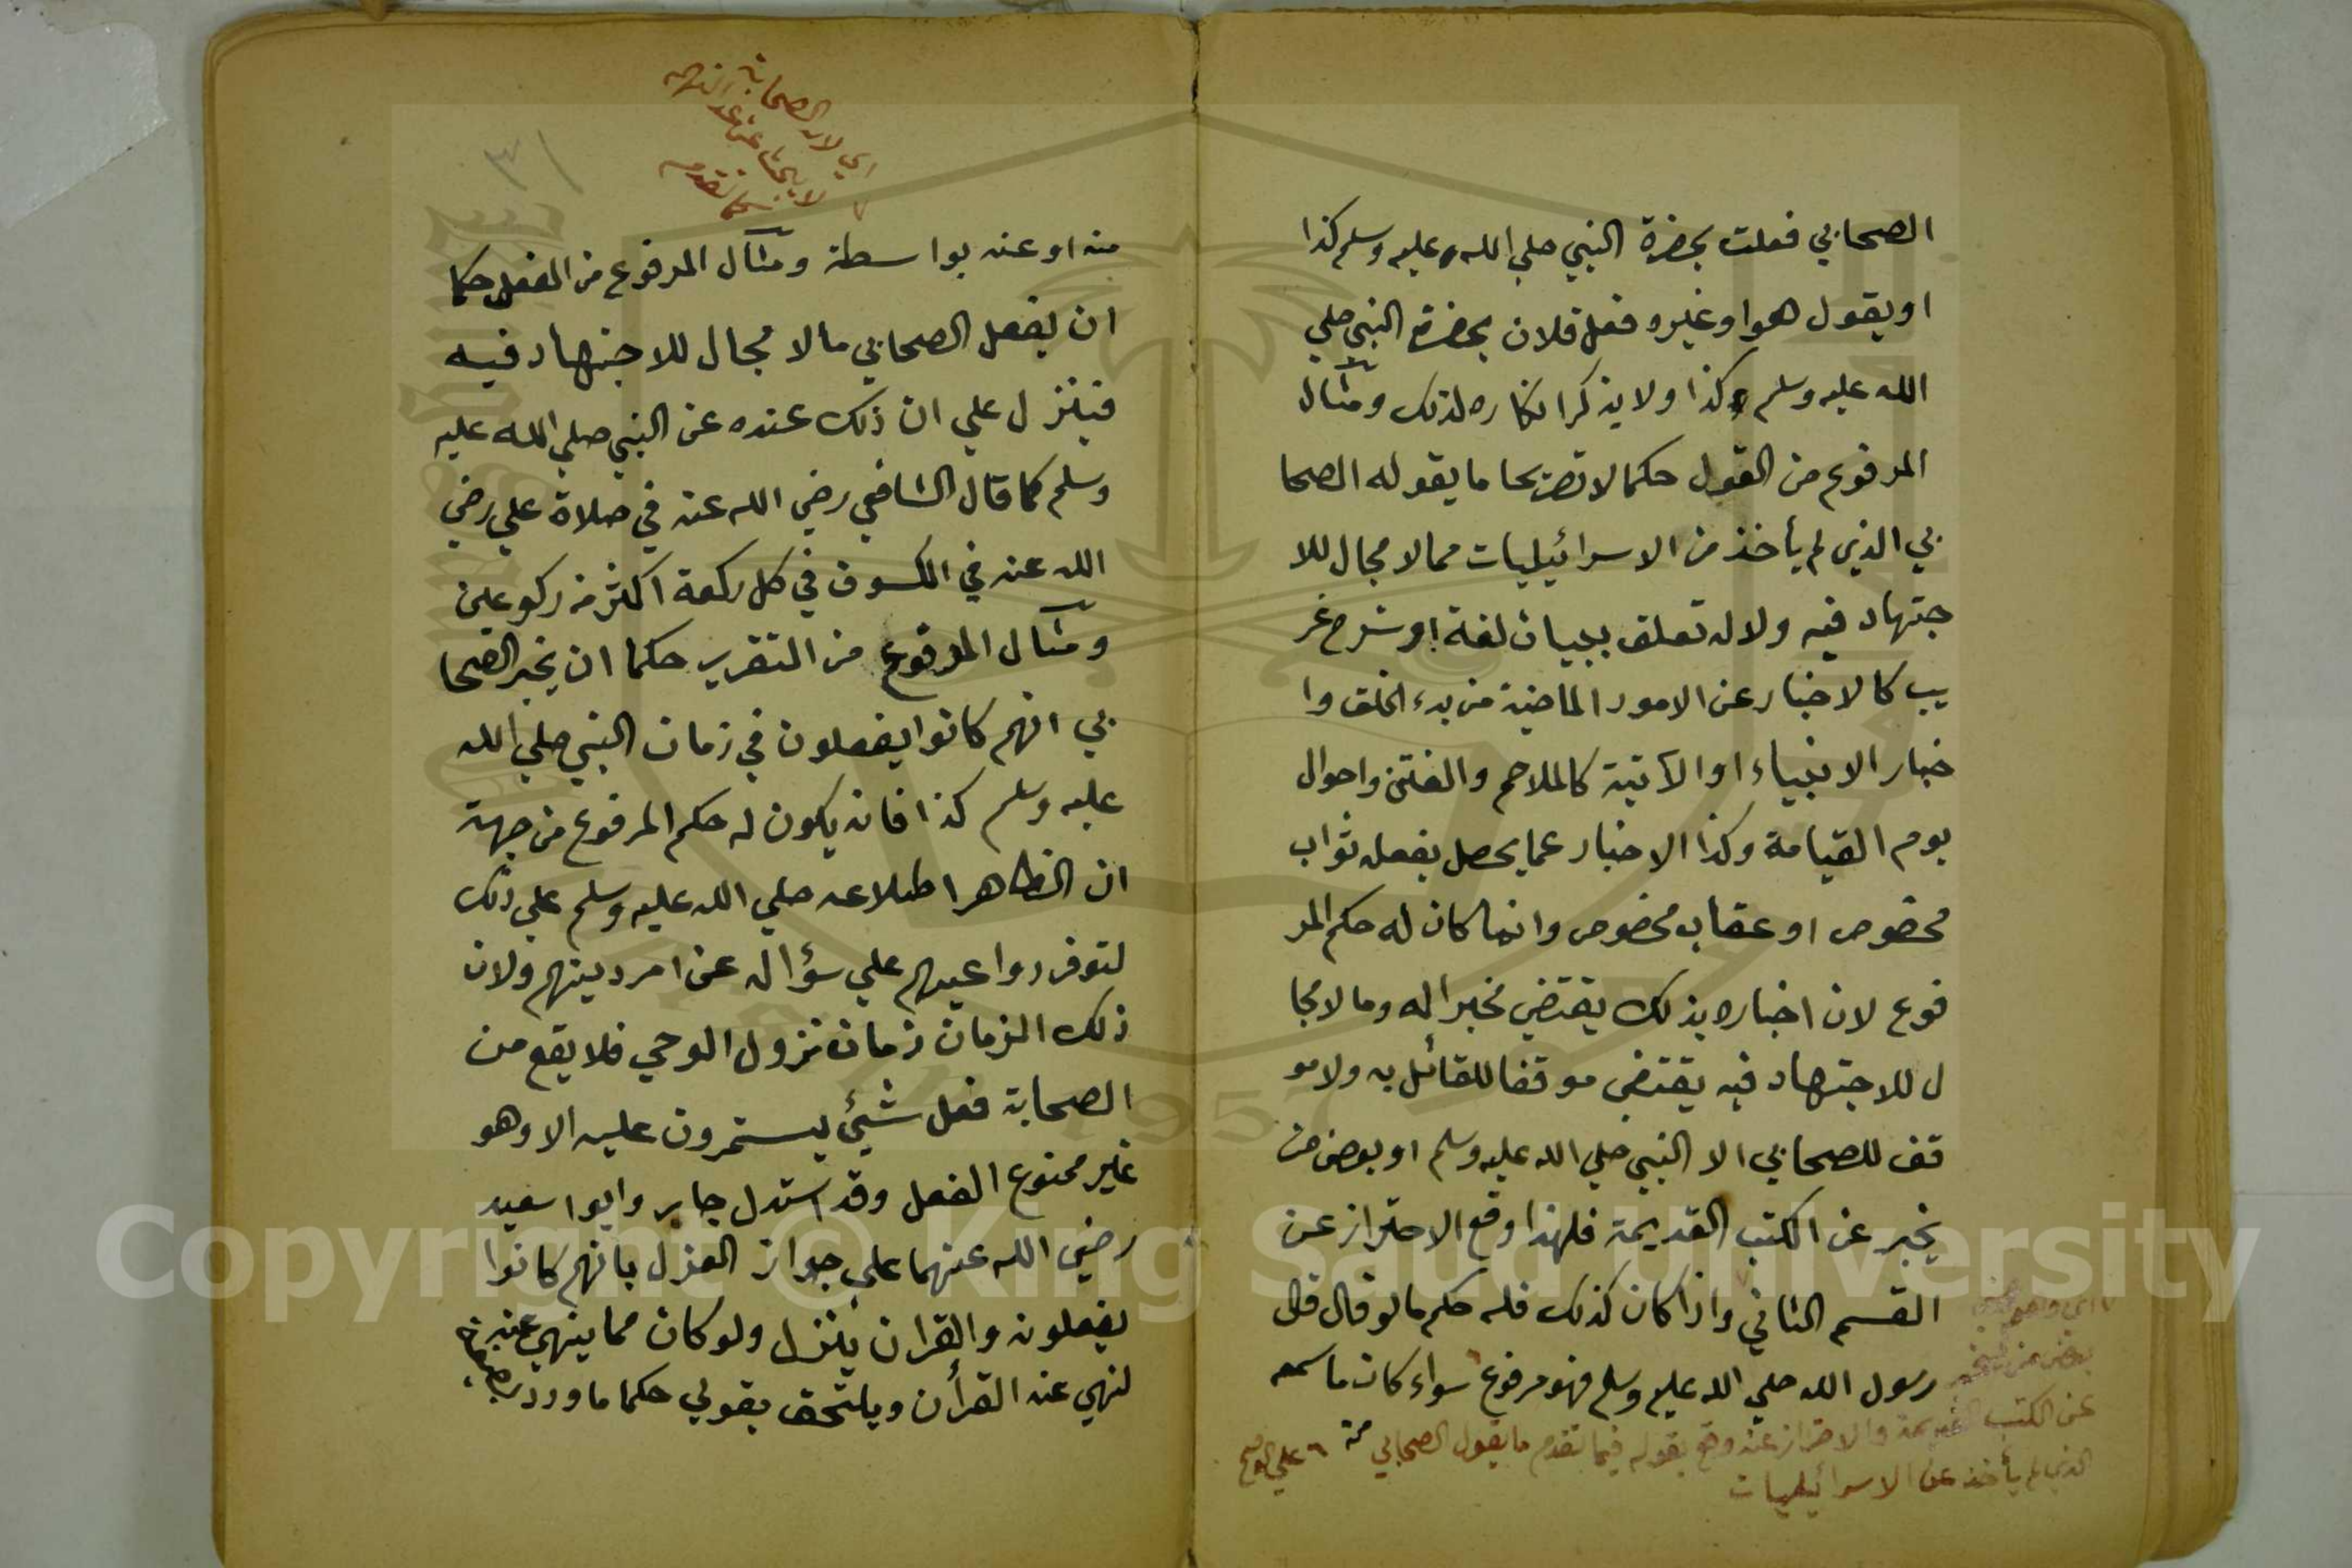 الصحابي فعلت بحضرة النبي صلي الله عليه وسلم كذا
او يقول هو او غيره فعل فلان بحضرة النبي صلي
الله عليه وسلم كذا ولا يذكر انكاره لذلك ومثال
المرفوع من القول حكما لا تصريحا ما يقوله الصحا
بي الذي لم يأخذ من الاسرائيليات مما لا مجال للا
جتهاد فيه ولا له تعلق ببيان لغة او شرح غر
يب كالاخبار عن الامور الماضية من بدء الخلق وا
خبار الانبياء او الآتية كالملاحم والفتن واحوال
يوم القيامة وكذا الاخبار عما يحصل بفعله ثواب
مخصوص او عقاب مخصوص وانما كان له حكم المر
فوع لان اخباره بذلك يقتضي مخبرا له وما لا مجا
ل للاجتهاد فيه يقتضي موقفا للقائل به ولا مو
قف للصحابي الا النبي صلي الله عليه وسلم او بعض من
يخبر عن الكتب القديمة فلهذا وقع الاحتراز عن
القسم الثاني واذا كان كذلك فله حكم ما لو قال قال
رسول الله صلي الله عليه وسلم فهو مرفوع سواء كان ما سمعه
اي وهو
بعض من يخبر
عن الكتب القديمة والاحتراز عنه وقع بقوله فيما تقدم ما يقول الصحابي
الذي لم يأخذ عن الاسرائيليات
اي لان الصحابة
٣١
منه او عنه بواسطة ومثال المرفوع من الفعل حكما
ان يفعل الصحابي ما لا مجال للاجتهاد فيه
فينزل علي ان ذلك عنده عن النبي صلي الله عليه
وسلم كما قال الشافعي رضي الله عنه في صلاة علي رضي
الله عنه في الكسوف في كل ركعة اكثر من ركوعين
ومثال المرفوع من التقرير حكما ان يخبر الصحا
بي انهم كانوا يفعلون في زمان النبي صلي الله
عليه وسلم كذا فانه يكون له حكم المرفوع من جهة
ان الظاهر اطلاعه صلي الله عليه وسلم علي ذلك
لتوفر دواعيهم علي سؤاله عن امر دينهم ولان
ذلك الزمان زمان نزول الوحي فلا يقع من
الصحابة فعل شيئ يستمرون عليه الا وهو
غير ممنوع الفعل وقد استدل جابر وابوا سعيد
رضي الله عنهما علي جواز العزل بانهم كانوا
يفعلونه والقران ينزل ولو كان مما ينهي عنه
لنهي عنه القرأن ويلتحق بقولي حكما ما ورد
Copyright © King Saud University
1957